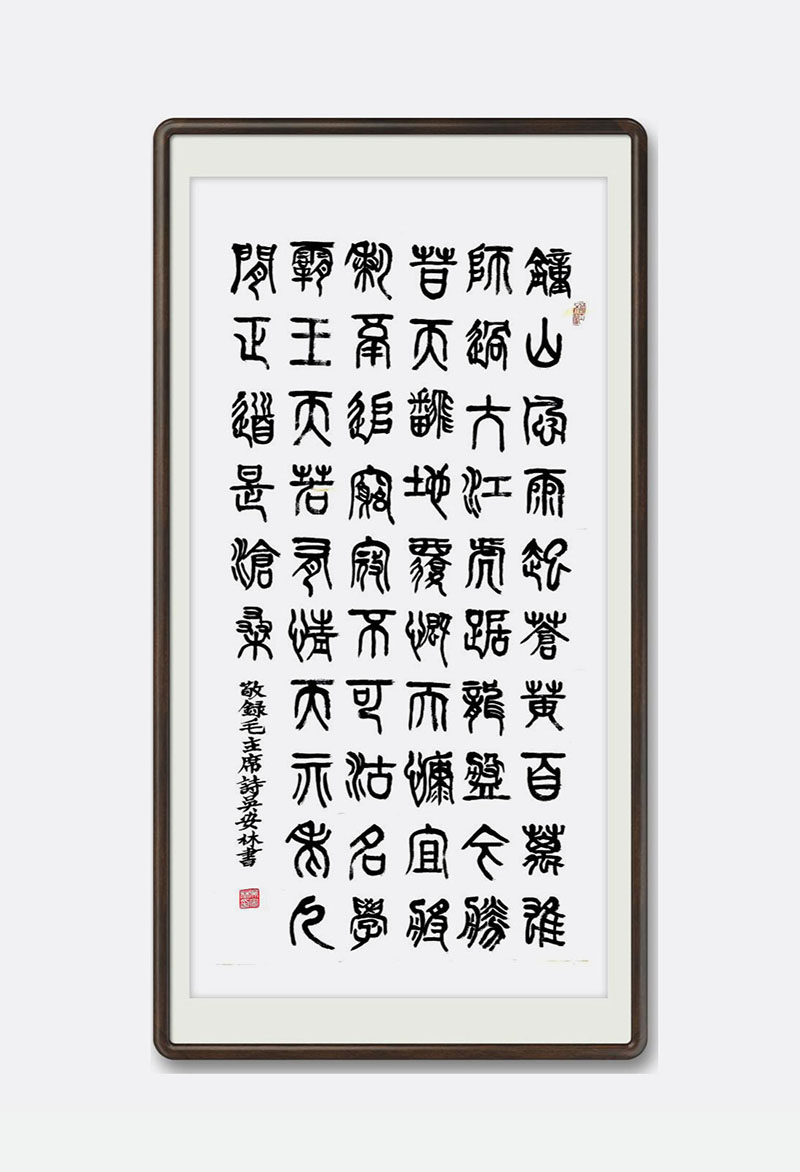 鐘山風雨起蒼黃百萬雄
師過大江虎踞龍盤今勝
昔天翻地覆慨而慷宜將
剩勇追窮寇不可沽名學
霸王天若有情天亦老人
間正道是滄桑
敬録毛主席詩吳安林書